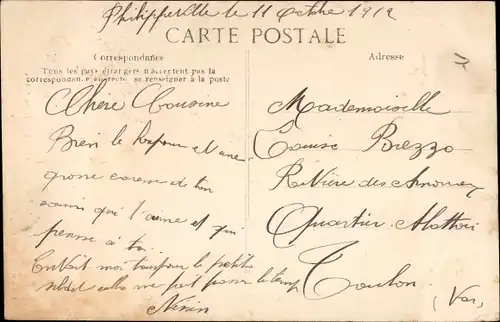 Philippeville le 11 octbre 1912
CARTE POSTALE
Correspondance
Tous les pays étrangers n'acceptent pas la
correspondance au recto se renseigner à la poste
Chère Cousine
Bien le bonjour et une
grosse caresse de ton
cousin qui t'aime et qui
pense à toi.
moi toujours le petit
le temp
Ninin
Adresse
Mademoiselle
Louise Brezzo
Rivière des
Quartier
Toulon
(Var)